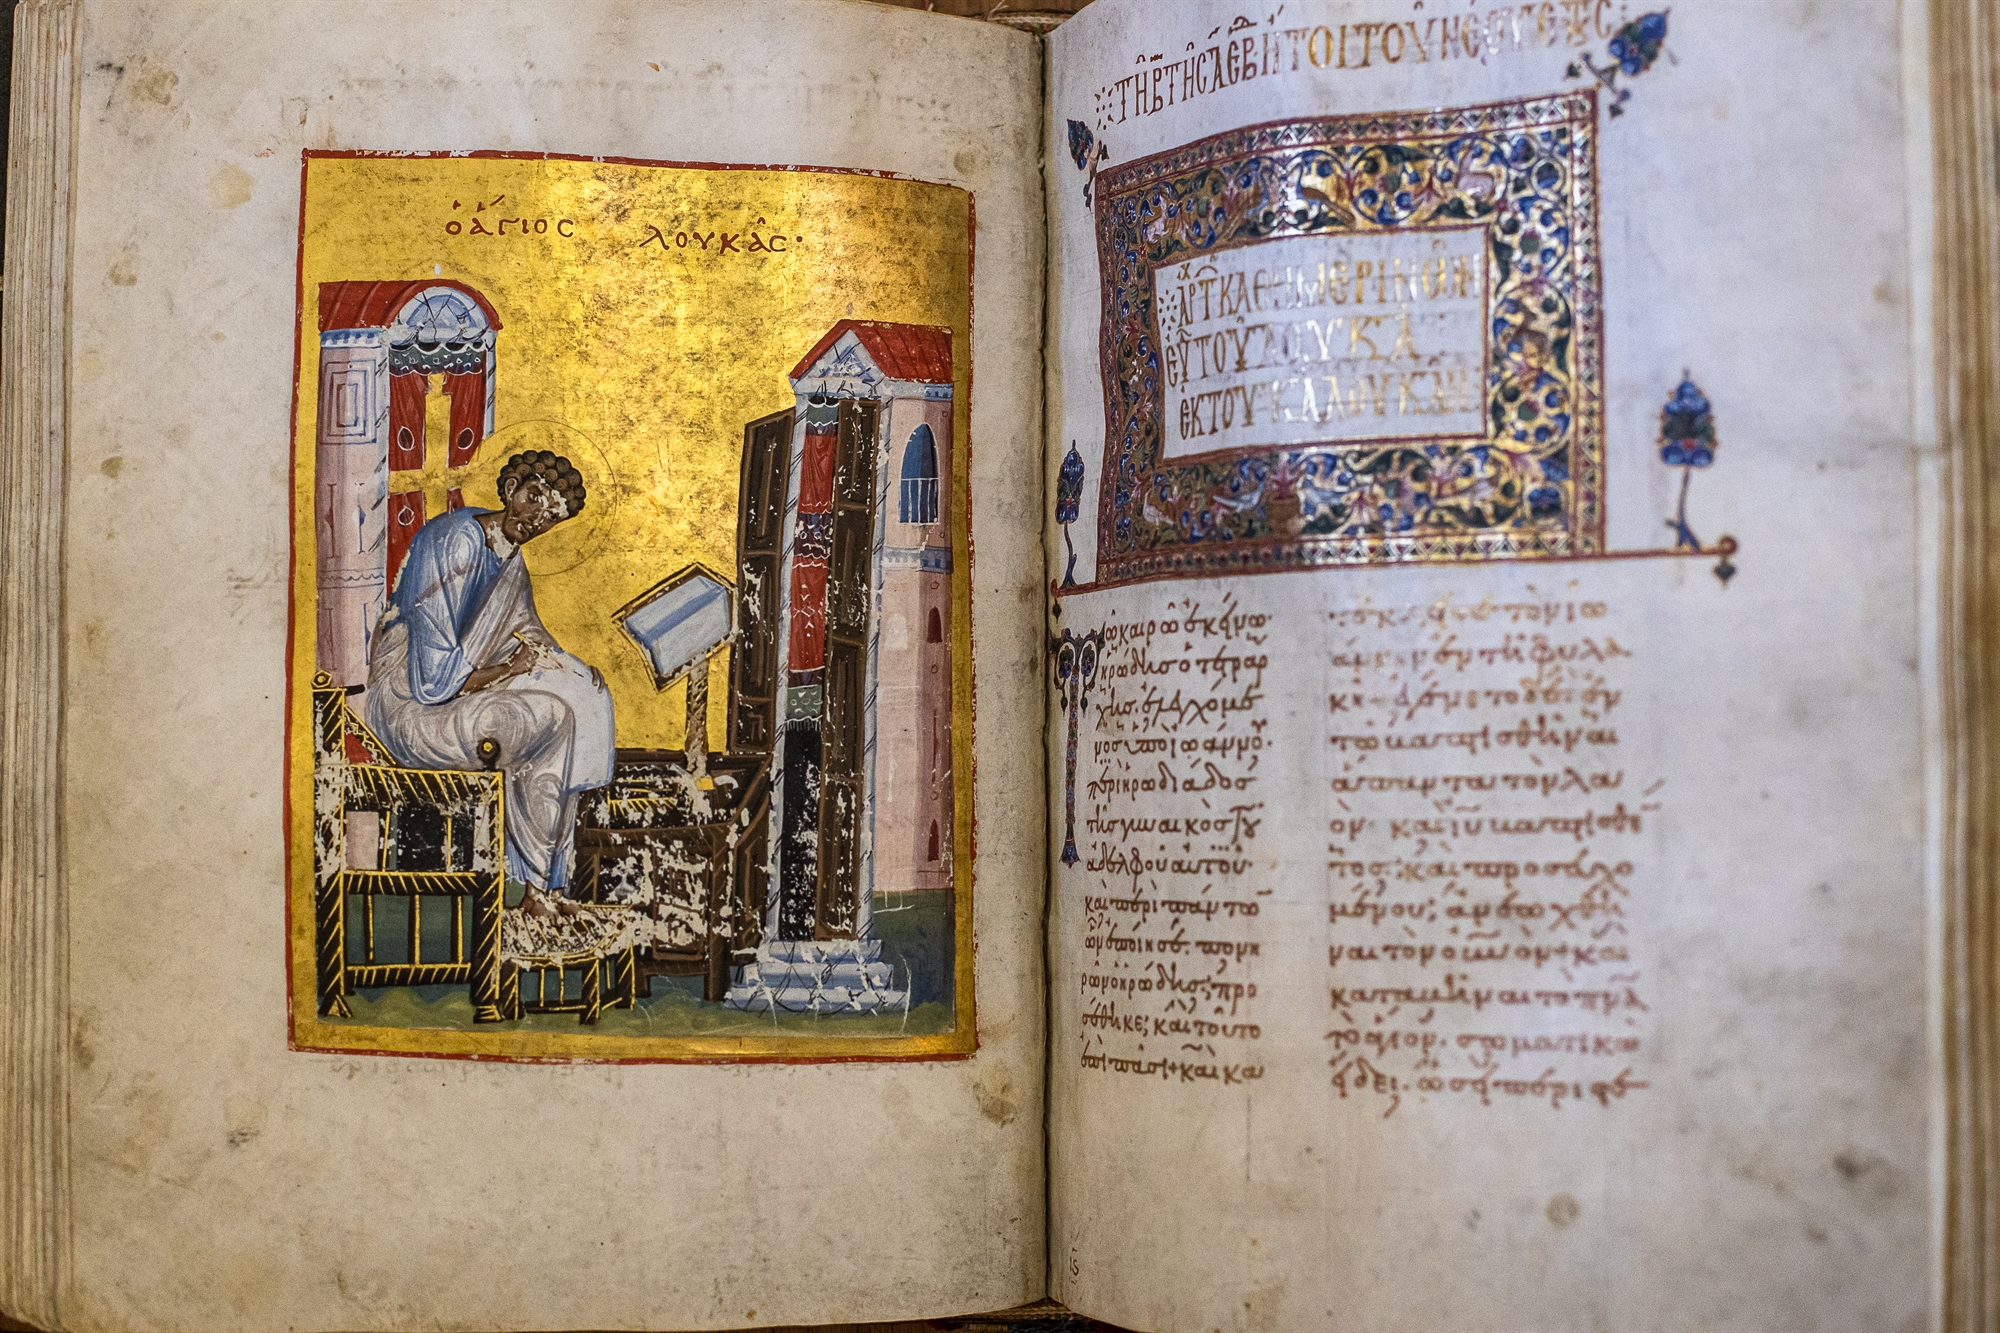 ὁ ἅγιος λουκᾶς·
τῆ β τῆς α ἑβδ ἤτοι τοῦ νέου ἔτους
ἀρχ τ καθημερινῶν
εὐ τοῦ λουκᾶ
ἐκ τοῦ κα λουκᾶν
Τῶ καιρῶ ἐκείνω·
ἡρώδης ὁ τετραρ
χης· ἐλεγχόμε
νος ὑπὸ ἰωάννου·
περὶ ἡρωδιάδος
τῆς γυναικὸς τοῦ
ἀδελφοῦ αὐτοῦ·
καὶ περὶ πάντων
ὧν ἐποίησε πονη
ρῶν ὁ ἡρώδης, προ
σέθηκε, καὶ τοῦτο
ἐπὶ πᾶσι + καὶ κα
τέκλεισε τὸν ἰω
άννην ἐν τῆ φυλα
κῆ + ἐγένετο δὲ ἐν
τῶ βαπτισθῆναι
ἅπαντα τὸν λα
όν· καὶ ἰυ βαπτισθέν
τος, καὶ προσευχο
μένου, ἀνεωχθῆ
ναι τὸν οὐνον + καὶ
καταβῆναι τὸ πνα
τὸ ἅγιον· σωματικῶ
εἴδει· ὡσεὶ περιστε